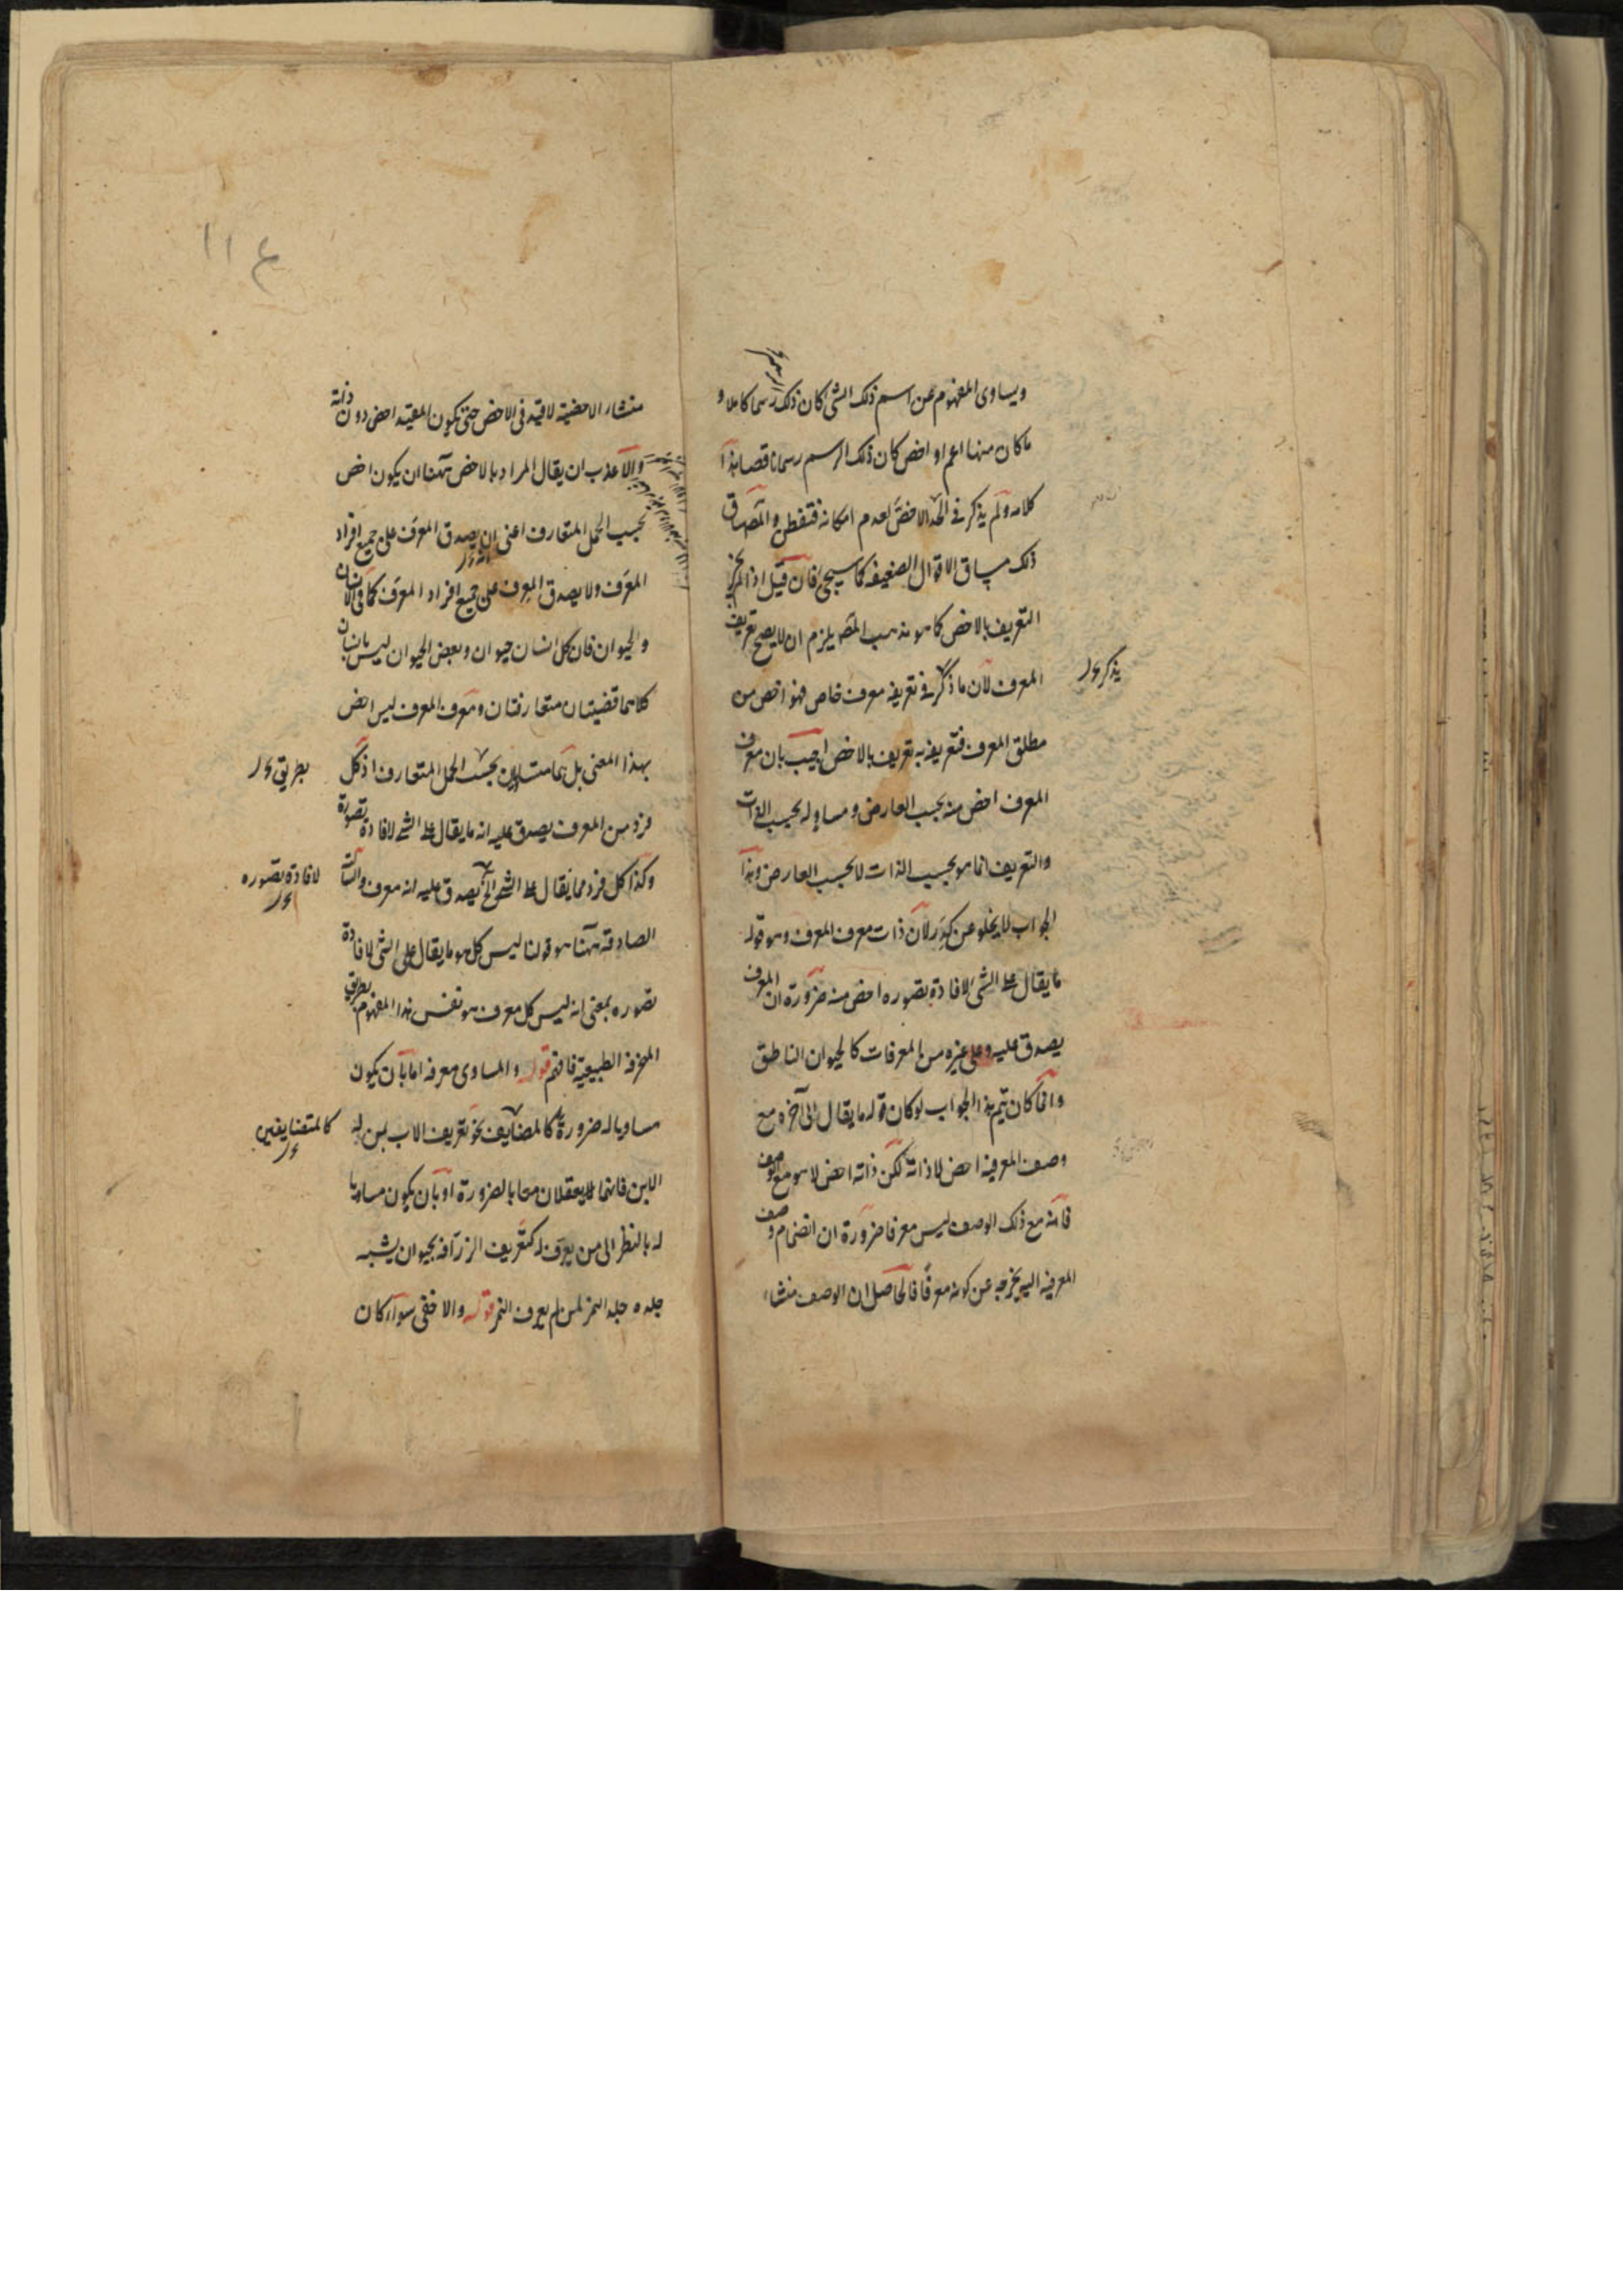 ويساوى المفهوم عن اسم ذلك الشى كان ذلك رسما كاملا و
ما كان منها اعم او اخص كان ذلك الرسم رسما ناقصا هذا
كلامه ولم يذكر فى الحد الاخص لعدم امكانه فتفطن والمص ساق
ذلك مساق الاقوال الضعيفه كما سيجئ فان قيل اذا لم يجز
التعريف بالاخص كما هو مذهب المص يلزم ان لا يصح تعريف
المعرف لان ما ذكر فى تعريفه معرف خاص فهو اخص من
يذكر
مطلق المعرف فتعريفه به تعريف بالاخص اجيب بان معرف
المعرف اخص منه بحسب العارض ومساو له بحسب الذات
والتعريف انما هو بحسب الذات لا بحسب العارض وهذا
الجواب لا يخلو عن كدر لان ذات معرف المعرف وهو قوله
ما يقال على الشى لافادة تصوره اخص منه ضرورة ان المعرف
يصدق عليه وعلى غيره من المعرفات كالحيوان الناطق
وانما كان يتم هذا الجواب لو كان قوله ما يقال الى آخره مع
وصف المعرفيه اخص لا ذاته لكن ذاته اخص لا هو مع الوصف
فانه مع ذلك الوصف ليس معرفا ضرورة ان انضمام وصف
المعرفيه اليه يخرجه عن كونه معرفا فالحاصل ان الوصف منشاء
١١٤
منشاء الاخصية لا قيد فى الاخص حتى يكون المقيد اخص دون ذاته
والاعذب ان يقال المراد بالاخص ههنا ان يكون اخص
بحسب الحمل المتعارف اعنى ان يصدق المعرف على جميع افراد
المعرف ولا يصدق المعرف على جميع افراد المعرف كما فى الانسان
والحيوان فان كل انسان حيوان وبعض الحيوان ليس بانسان
كلاهما قضيتان متعارفتان ومعرف المعرف ليس اخص
بهذا المعنى بل هما متساويان بحسب الحمل المتعارف اذ كل
بطريق
فرد من المعرف يصدق عليه انه ما يقال على الشى لافادة تصوره
وكذا كل فرد مما يقال على الشى الخ يصدق عليه انه معرف والسالبة
لافادة تصوره
الصادقه ههنا هو قولنا ليس كل هو ما يقال على الشى لافادة
تصوره بمعنى انه ليس كل معرف هو نفس هذا المفهوم بطريق
المنحرفه الطبيعية فافهم قوله والمساوى معرفه اما بان يكون
مساويا له ضرورة كالمضايف نحو تعريف الاب بمن له
كالمتضايفين
الابن فانهما يعقلان معا بالضرورة او بان يكون مساويا
له بالنظر الى من يعرف له كتعريف الزرافه بحيوان يشبه
جلده جلد النمر لمن لم يعرف النمر قوله والاخفى سواء كان